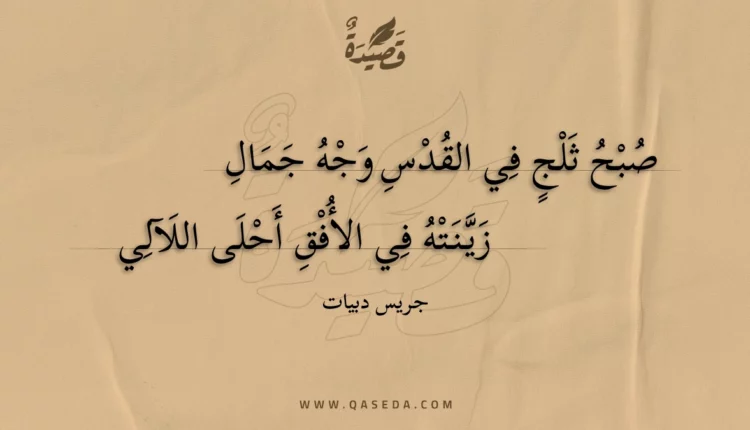 قَصِيدَةٌ
صُبْحُ ثَلْجٍ فِي القُدْسِ وَجْهُ جَمَالِ
زَيَّنَتْهُ فِي الأُفْقِ أَحْلَى اللَآلِي
جريس دبيات
WWW.QASEDA.COM